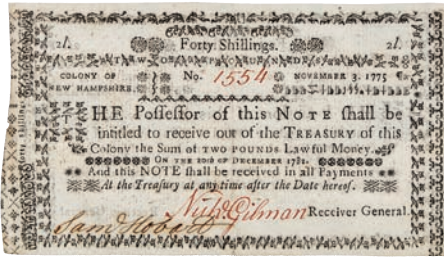 2l. Forty Shillings. 2l.
COLONY OF NEW HAMPSHIRE. No. 1554 NOVEMBER 3. 1775
THE Possessor of this NOTE shall be
intitled to receive out of the TREASURY of this
Colony the Sum of TWO POUNDS Lawful Money.
ON THE 20th OF DECEMBER 1781.
And this NOTE shall be received in all Payments
At the Treasury at any time after the Date hereof.
Nichs. Gilman Receiver General.
Saml Hobart
forty shillings